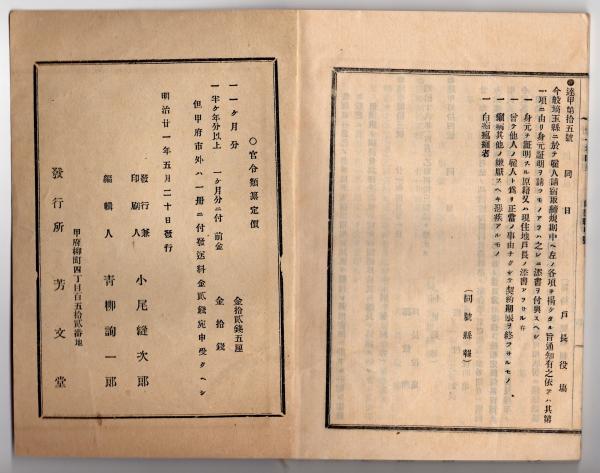 達甲第拾五號
同日　戸長役場
今般埼玉縣ニ於テ雇人請宿取締規則中ヘ左ノ各項ヲ揭ケタル旨通知有之依テハ其第
一項ニ由リ身元證明ヲ請フモノアラハ之レニ添書ヲ付與スヘシ
一　身元ヲ証明スル原籍又ハ現住地戸長ノ添書アラサル者
一　曾テ他人ノ雇人ト爲リ正當ノ事由ナクシテ契約期限ヲ終ヘサルモノ
一　癩病其他ノ嫌厭スヘキ惡疾アルモノ
一　白痴瘋癲者
（同號縣報）
〇官令類纂定價
一　一ヶ月分　金拾貳錢五厘
一　半ヶ年分以上　一ヶ月分ニ付　前金　金拾錢
但甲府市外ハ一册ニ付發送料金貳錢宛申受クヘシ
明治廿一年五月二十日發行
發行兼印刷人　小尾縫次郎
編輯人　青柳詢一郎
甲府柳町四丁目百五拾貳番地
發行所　芳文堂